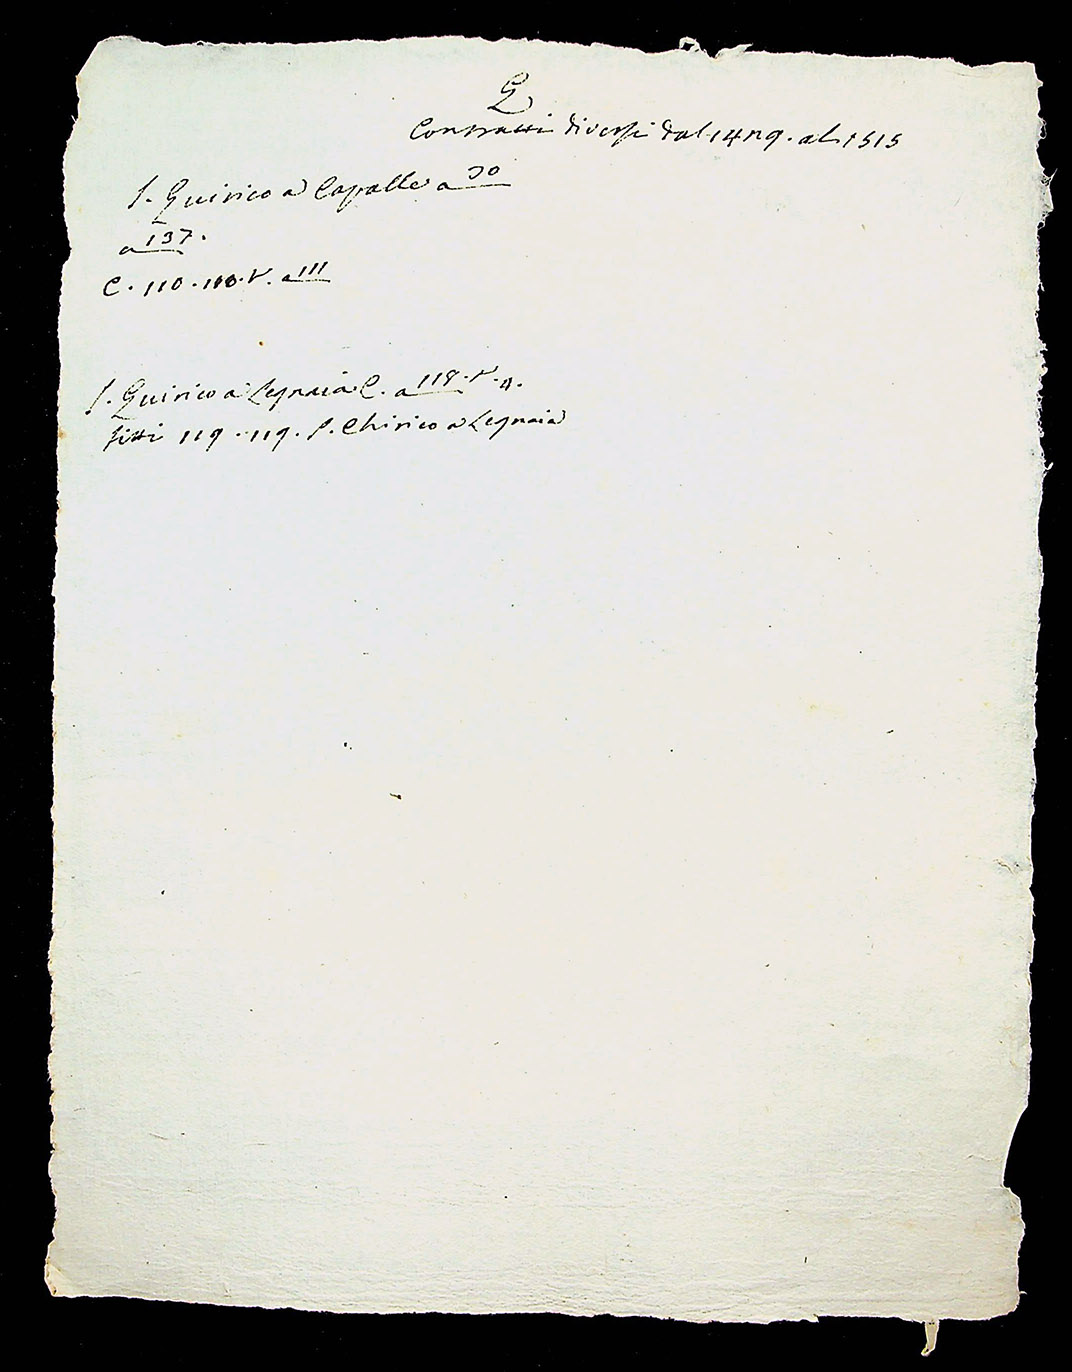 Q
Contratti diversi dal 14 al 1515
S. Quirico a Capalle a 30
a 137.
C. 110. 110. V. a 111
S. Quirico a Legnaia C. a 118. V. 4.
fitti 119. 119. S. Chirico a Legnaia